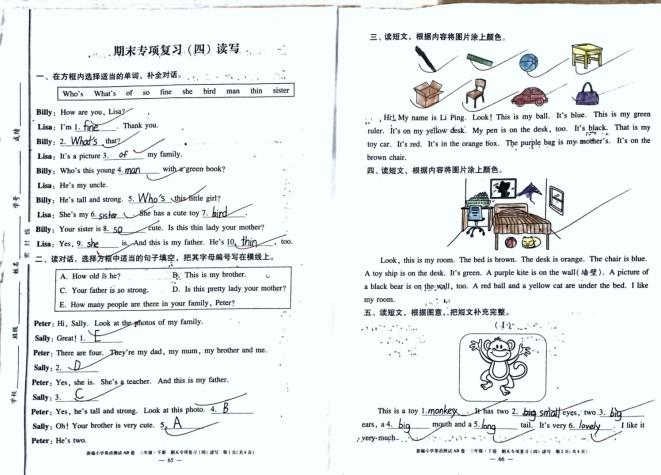 期末专项复习（四）读写
一、在方框内选择适当的单词，补全对话。
Who's What's of so fine she bird man thin sister
Billy: How are you, Lisa?
Lisa: I'm 1. fine . Thank you.
Billy: 2. What's that?
Lisa: It's a picture 3. of my family.
Billy: Who's this young 4. man with a green book?
Lisa: He's my uncle.
Billy: He's tall and strong. 5. Who's this little girl?
Lisa: She's my 6. sister . She has a cute toy 7. bird .
Billy: Your sister is 8. so cute. Is this thin lady your mother?
Lisa: Yes, 9. she is. And this is my father. He's 10. thin , too.
二、读对话，选择方框中适当的句子填空，把其字母编号写在横线上。
A. How old is he? B. This is my brother.
C. Your father is so strong. D. Is this pretty lady your mother?
E. How many people are there in your family, Peter?
Peter: Hi, Sally. Look at the photos of my family.
Sally: Great! 1. E
Peter: There are four. They're my dad, my mum, my brother and me.
Sally: 2. D
Peter: Yes, she is. She's a teacher. And this is my father.
Sally: 3. C
Peter: Yes, he's tall and strong. Look at this photo. 4. B
Sally: Oh! Your brother is very cute. 5. A
Peter: He's two.
新编小学英语测试AB卷 三年级·下册 期末专项复习（四）读写 第1页（共4页）
— 65 —
学校
班级
姓名
学号
成绩
密封线
三、读短文，根据内容将图片涂上颜色。
Hi! My name is Li Ping. Look! This is my ball. It's blue. This is my green
ruler. It's on my yellow desk. My pen is on the desk, too. It's black. That is my
toy car. It's red. It's in the orange box. The purple bag is my mother's. It's on the
brown chair.
四、读短文，根据内容将图片涂上颜色。
Look, this is my room. The bed is brown. The desk is orange. The chair is blue.
A toy ship is on the desk. It's green. A purple kite is on the wall(墙壁). A picture of
a black bear is on the wall, too. A red ball and a yellow cat are under the bed. I like
my room.
五、读短文，根据图意，把短文补充完整。
This is a toy 1. monkey . It has two 2. big small eyes, two 3. big
ears, a 4. big mouth and a 5. long tail. It's very 6. lovely . I like it
very much.
新编小学英语测试AB卷 三年级·下册 期末专项复习（四）读写 第2页（共4页）
— 66 —